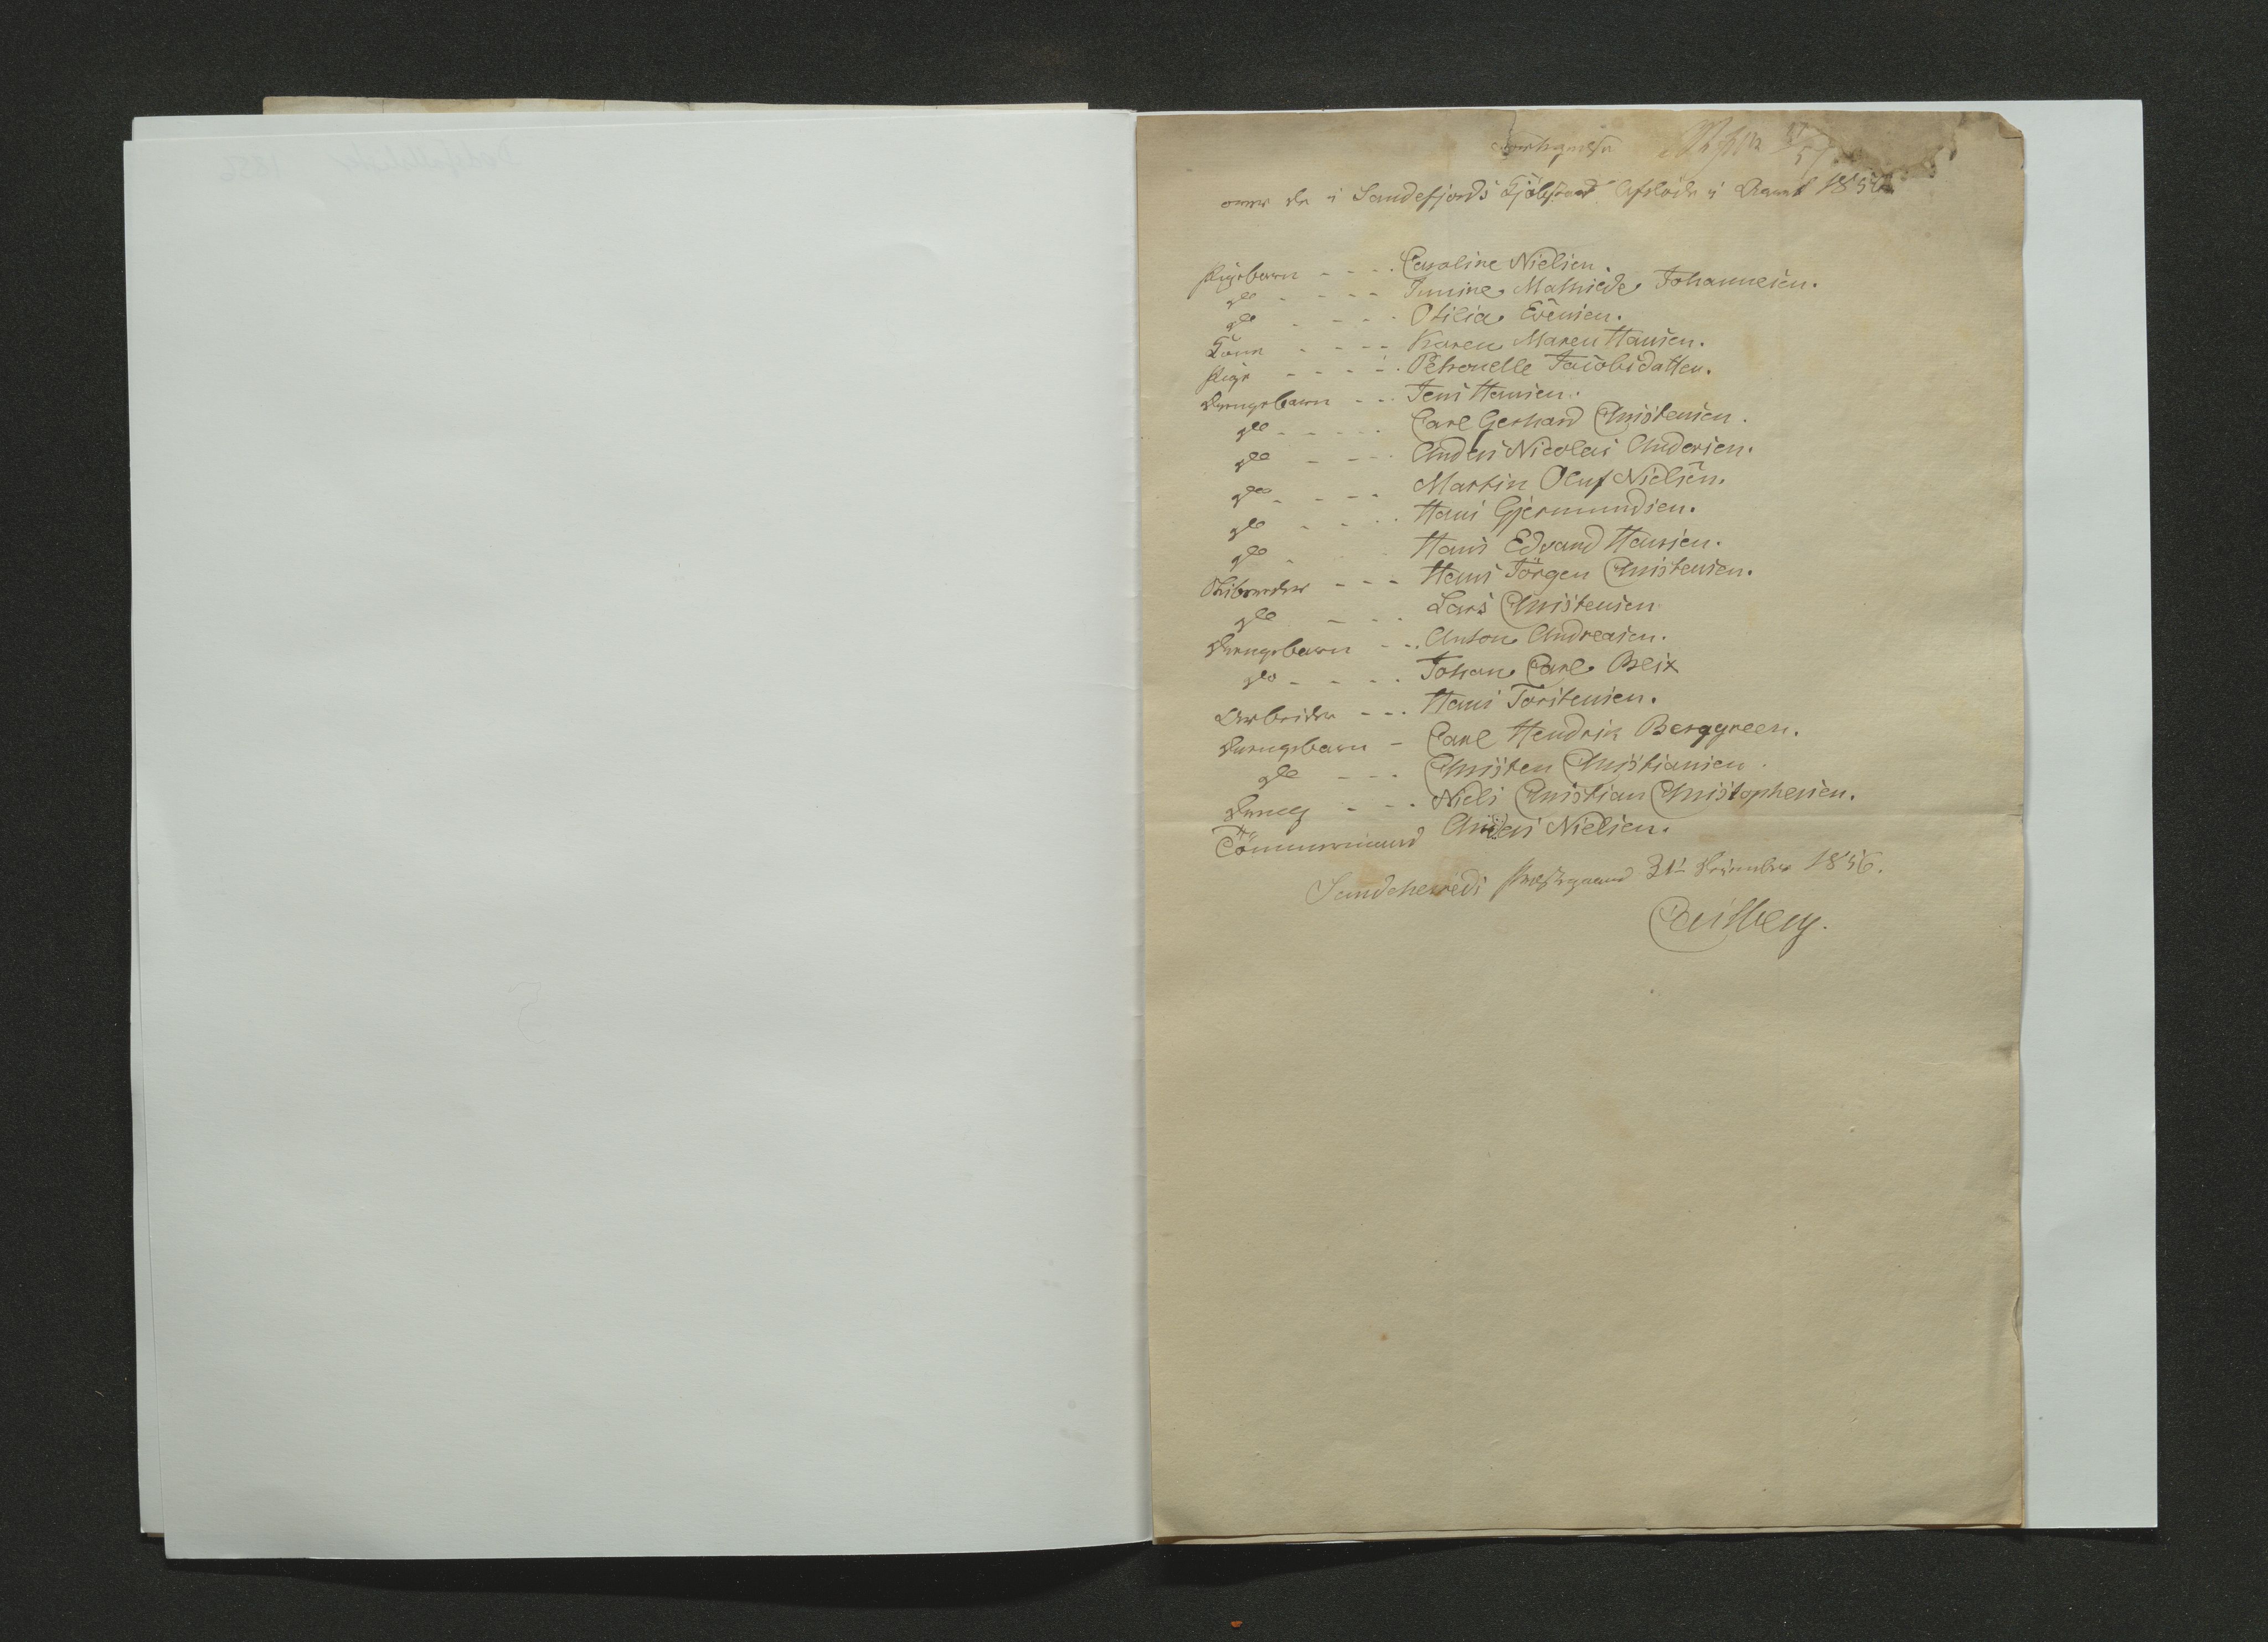 Fortegnelse
over de i Sandefjords Kjöbstad Afdöde i Aaret 1856
Pigebarn - - - - Caroline Nielsen.
do - - - - Inuine Mathilde Johannesen.
do - - - - Otilia Evensen.
Kone - - - - Karen Maren Hansen.
Pige - - - - Petronelle Jacobsdatter.
Drengebarn - - - Jens Hansen.
do - - - - - Carl Gerhard Christensen.
do - - - Anders Nicolai Andersen.
do - - - - Martin Oluf Nielsen.
do - - - Hans Gjermundsen.
do - Hans Edvard Hansen.
Skibsreder - - - Hans Jörgen Christensen.
do - - - Lars Christensen
Drengebarn - - - Anton Andreasen.
do - - - - Johan Carl Blix
Arbeider - - - Hans Torstensen.
Drengebarn - Carl Hendrik Berggreen.
do - - - Christen Christiansen.
Dreng - - - Niels Christian Christophersen.
Tömmermand Anders Nielsen.
Sandeherreds Præstegaard 31te December 1856.
Dodsfallslister 1856